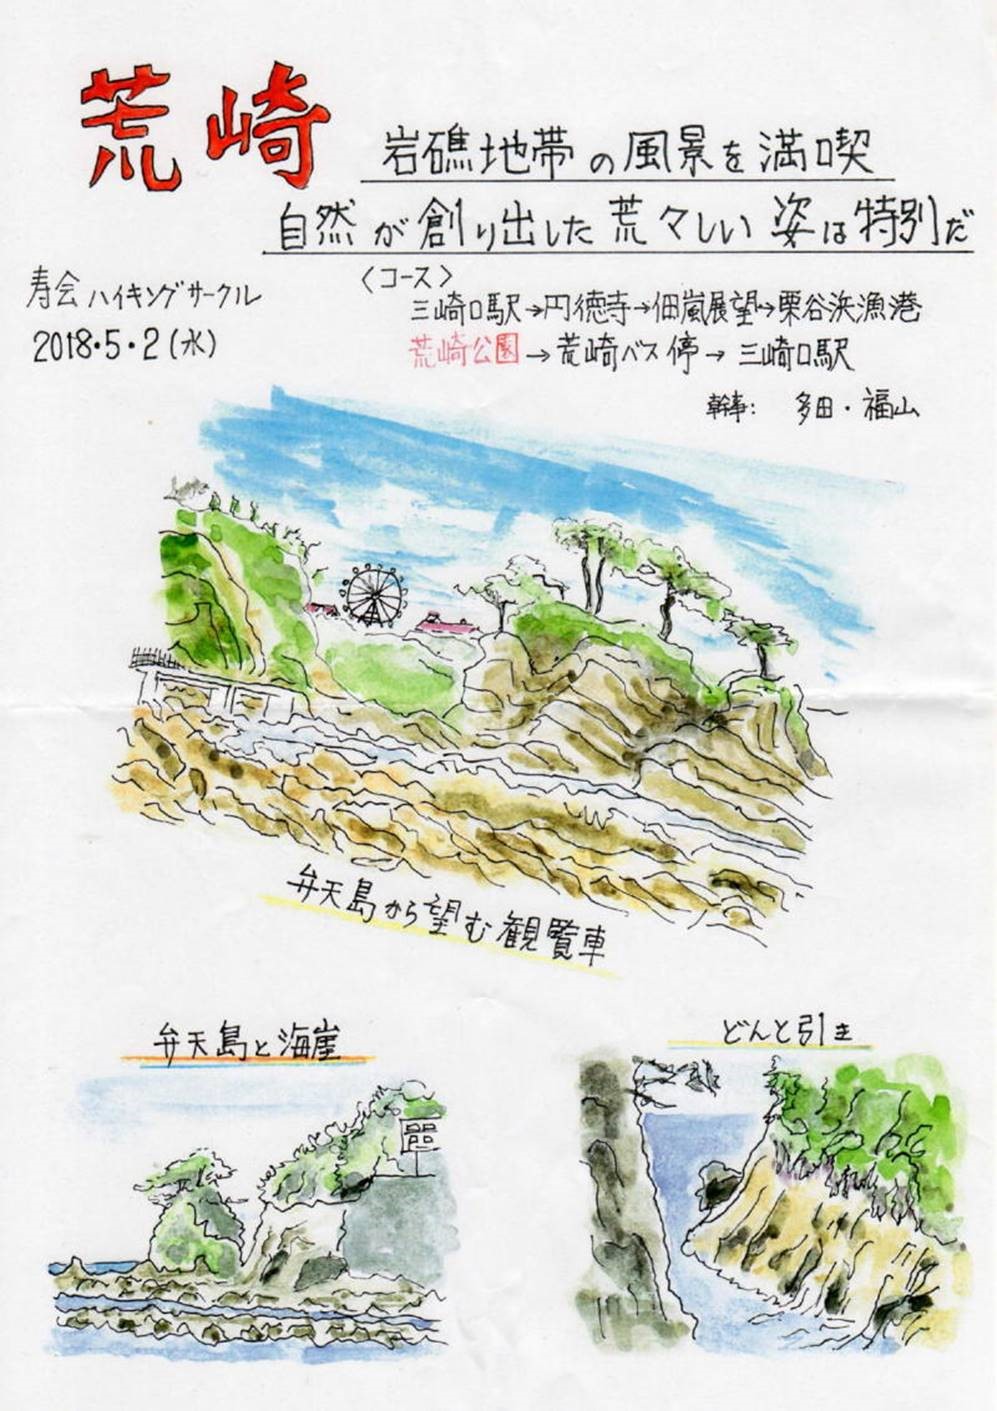 荒崎
岩礁地帯の風景を満喫
自然が創り出した荒々しい姿は特別だ
寿会ハイキングサークル
2018・5・2(水)
〈コース〉
三崎口駅→円徳寺→佃嵐展望→栗谷浜漁港
荒崎公園→荒崎バス停→三崎口駅
幹事: 多田・福山
弁天島から望む観覧車
弁天島と海崖
どんと引き